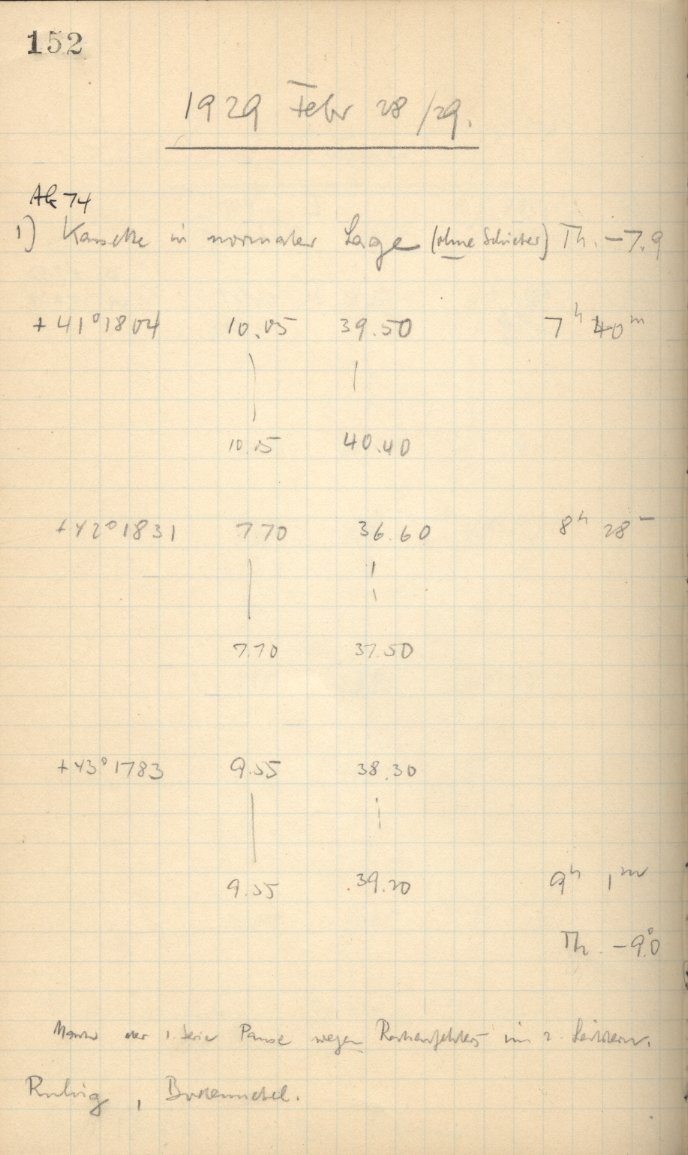 152
1929 Febr 28/29.
74
1) Kassette in normaler Lage (ohne Schieber) Th. -7.9
+41°1804 10.05 39.50 7h 40m
10.15 40.40
+42°1831 7.70 36.60 8h 28m
7.70 37.50
+43°1783 9.55 38.30
9.55 39.20 9h 1m
Th. -9.0
1. Serie Pause wegen im 2.
Ruhig, Bodennebel.